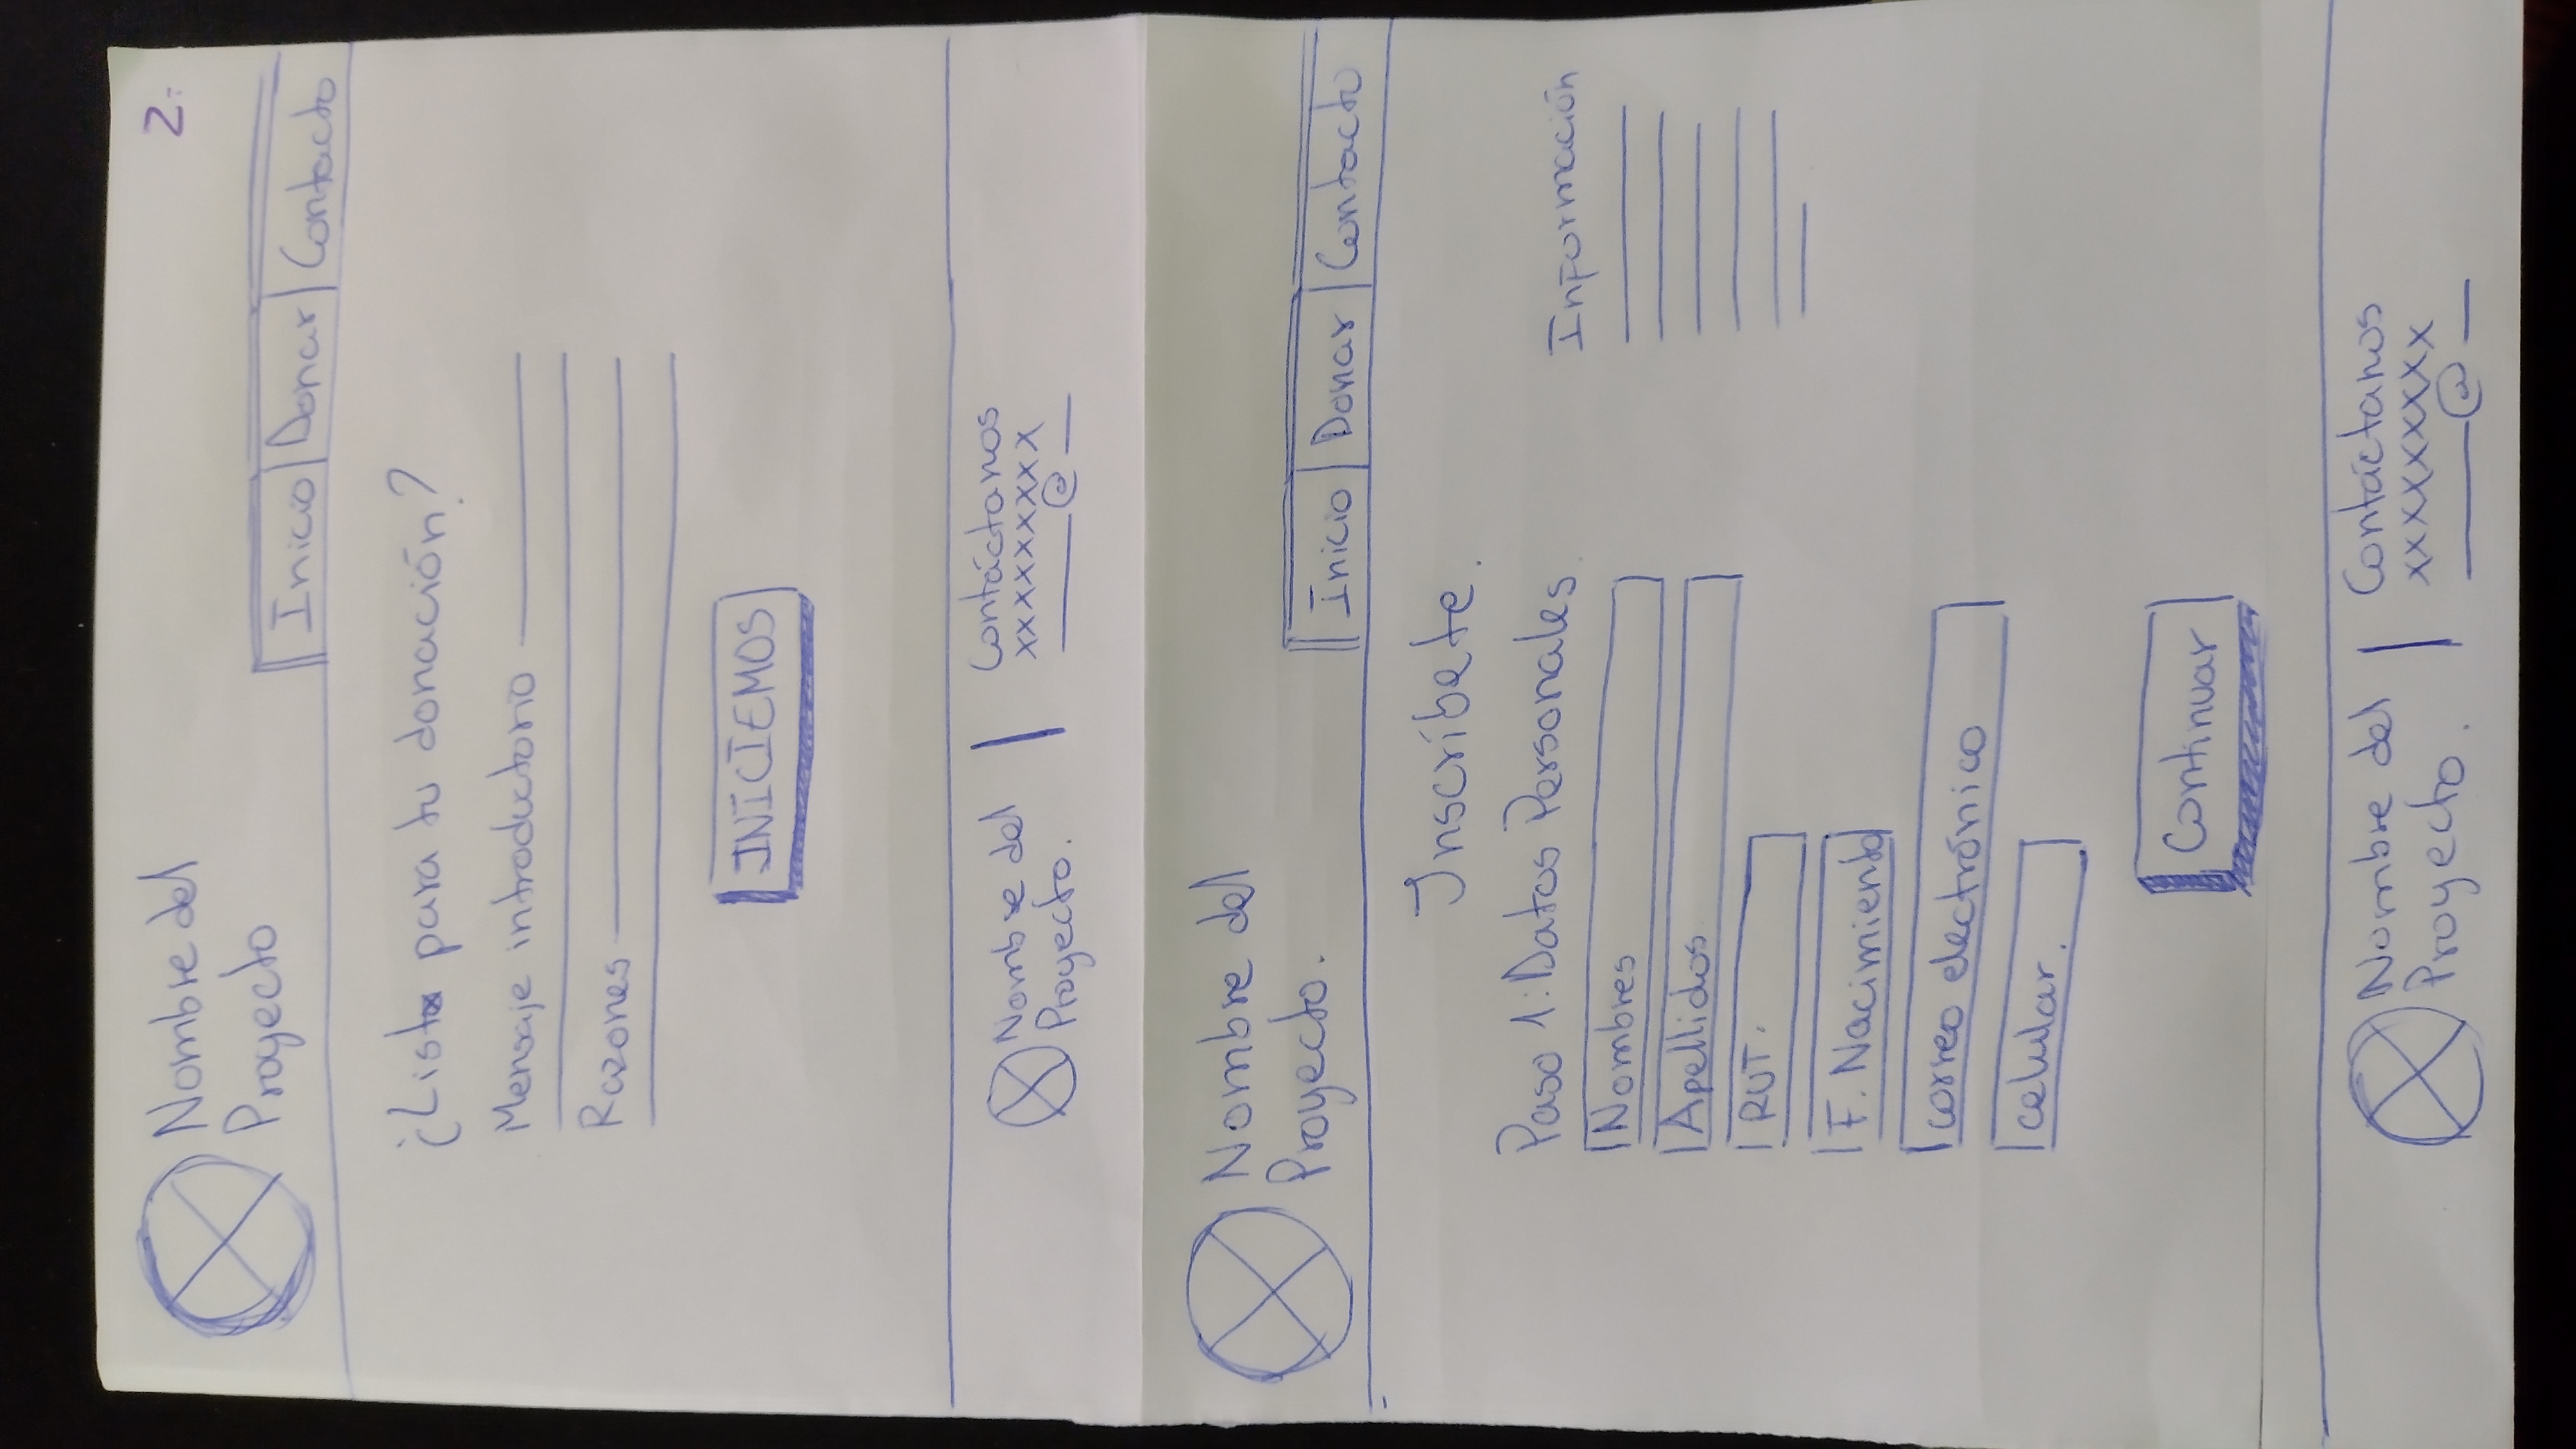 2.-
Nombre del
Proyecto
Inicio | Donar | Contacto
¿Listx para tu donación?
Mensaje introductorio
Razones
INICIEMOS
Nombre del
Proyecto.
Contáctanos
xxxxxxxxx
@
Nombre del
Proyecto.
Inicio | Donar | Contacto
Inscríbete.
Paso 1: Datos Personales.
Información
Nombres
Apellidos
RUT.
F. Nacimiento
correo electrónico
celular.
Continuar
Nombre del
Proyecto.
Contáctanos
xxxxxxxxx
@